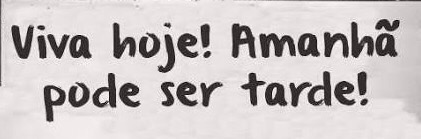 Viva hoje! Amanhã
pode ser tarde!